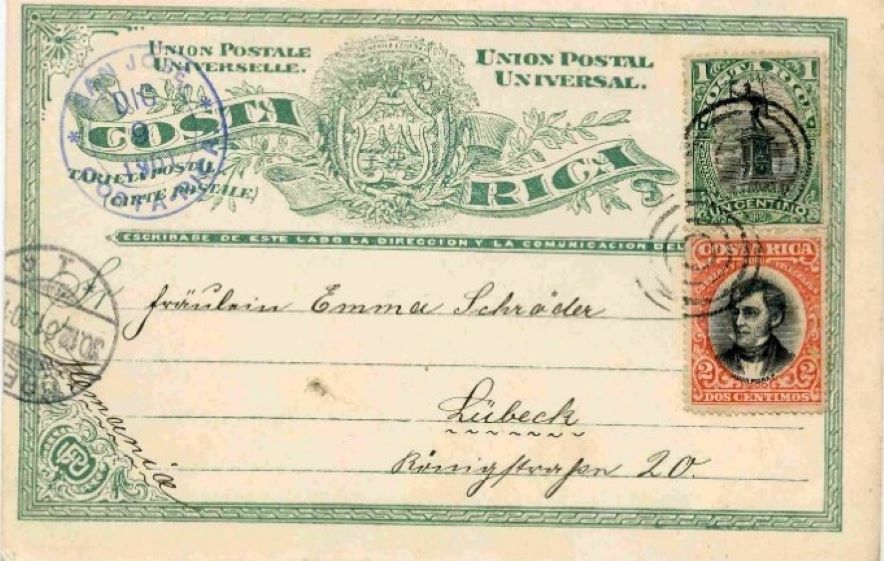 UNION POSTALE
UNIVERSELLE.
UNION POSTAL
UNIVERSAL.
SAN JOSE
DIC
9
1901
COSTA RICA
COSTA RICA
TARJETA POSTAL
(CARTE POSTALE)
ESCRIBASE DE ESTE LADO LA DIRECCION Y LA COMUNICACION DEL
1 COSTA RICA 1
UN CENTIMO
COSTA RICA
2 2
DOS CENTIMOS
30.12.01
Fräulein Emma Schröder
Lübeck
Königstraße 20.
Alemania